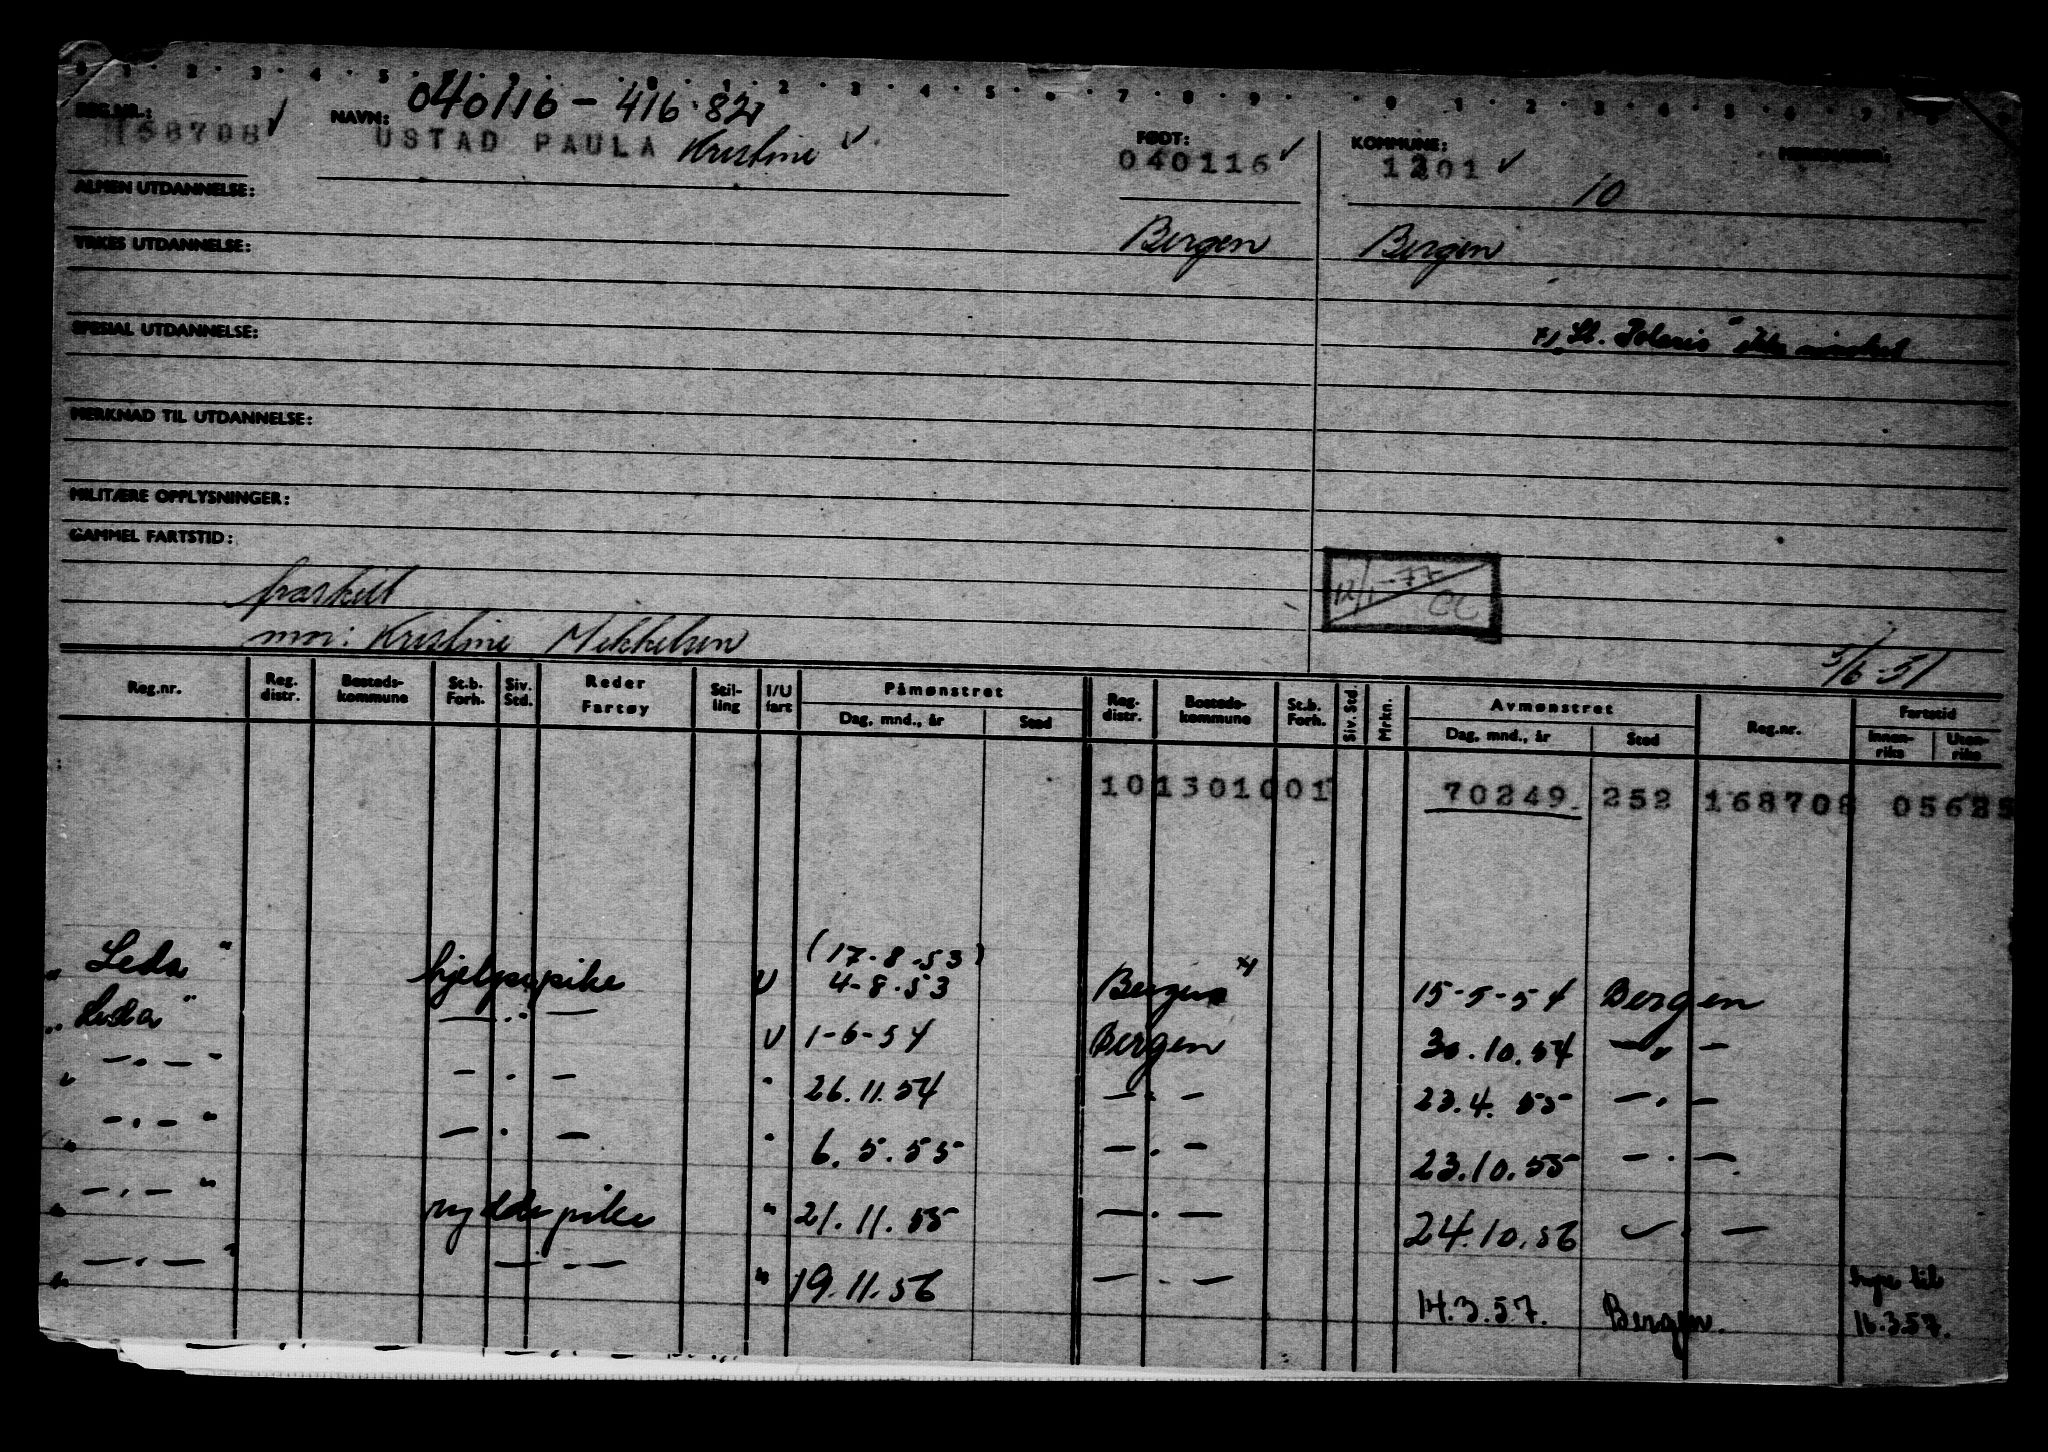 040116 - 416.82
REG.NR.: NAVN: FØDT: KOMMUNE: MERKNADER:
168708 USTAD PAULA Kristine 040116 1301
10
ALMEN UTDANNELSE:
Bergen Bergen
YRKES UTDANNELSE:
SPESIAL UTDANNELSE:
x) "St. Polaris" ikke mønstret
MERKNAD TIL UTDANNELSE:
MILITÆRE OPPLYSNINGER:
GAMMEL FARTSTID:
12/1-77
fraskilt
mor: Kristine Mikkelsen
5/6-51
Reg.nr. Reg. distr. Bosteds-kommune St.b. Forh. Siv. Std. Reder Fartøy Stil-ling I/U fart Påmønstret Dag, mnd., år Sted Reg. distr. Bosteds-kommune St.b. Forh. Siv. Std. Mrkn. Avmønstret Dag, mnd., år Sted Reg.nr. Fartstid Innen-riks Uten-riks
101301001 70249 252 168708 05625
(17-8-53)
"Leda" hjelpepike U 4-8-53 Bergen x) 15-5-54 Bergen
"Leda" — . — U 1-6-54 Bergen 30.10.54 — " —
" — . — " — . — " 26.11.54 — . — 23.4.55 — . —
" — . — " — . — " 6.5.55 — . — 23.10.55 — . —
" — . — " ryddepike " 21.11.55 — . — 24.10.56 — . —
" — . — " — . — " 19.11.56 — . — 14.3.57. Bergen. hyre til
16.3.57.